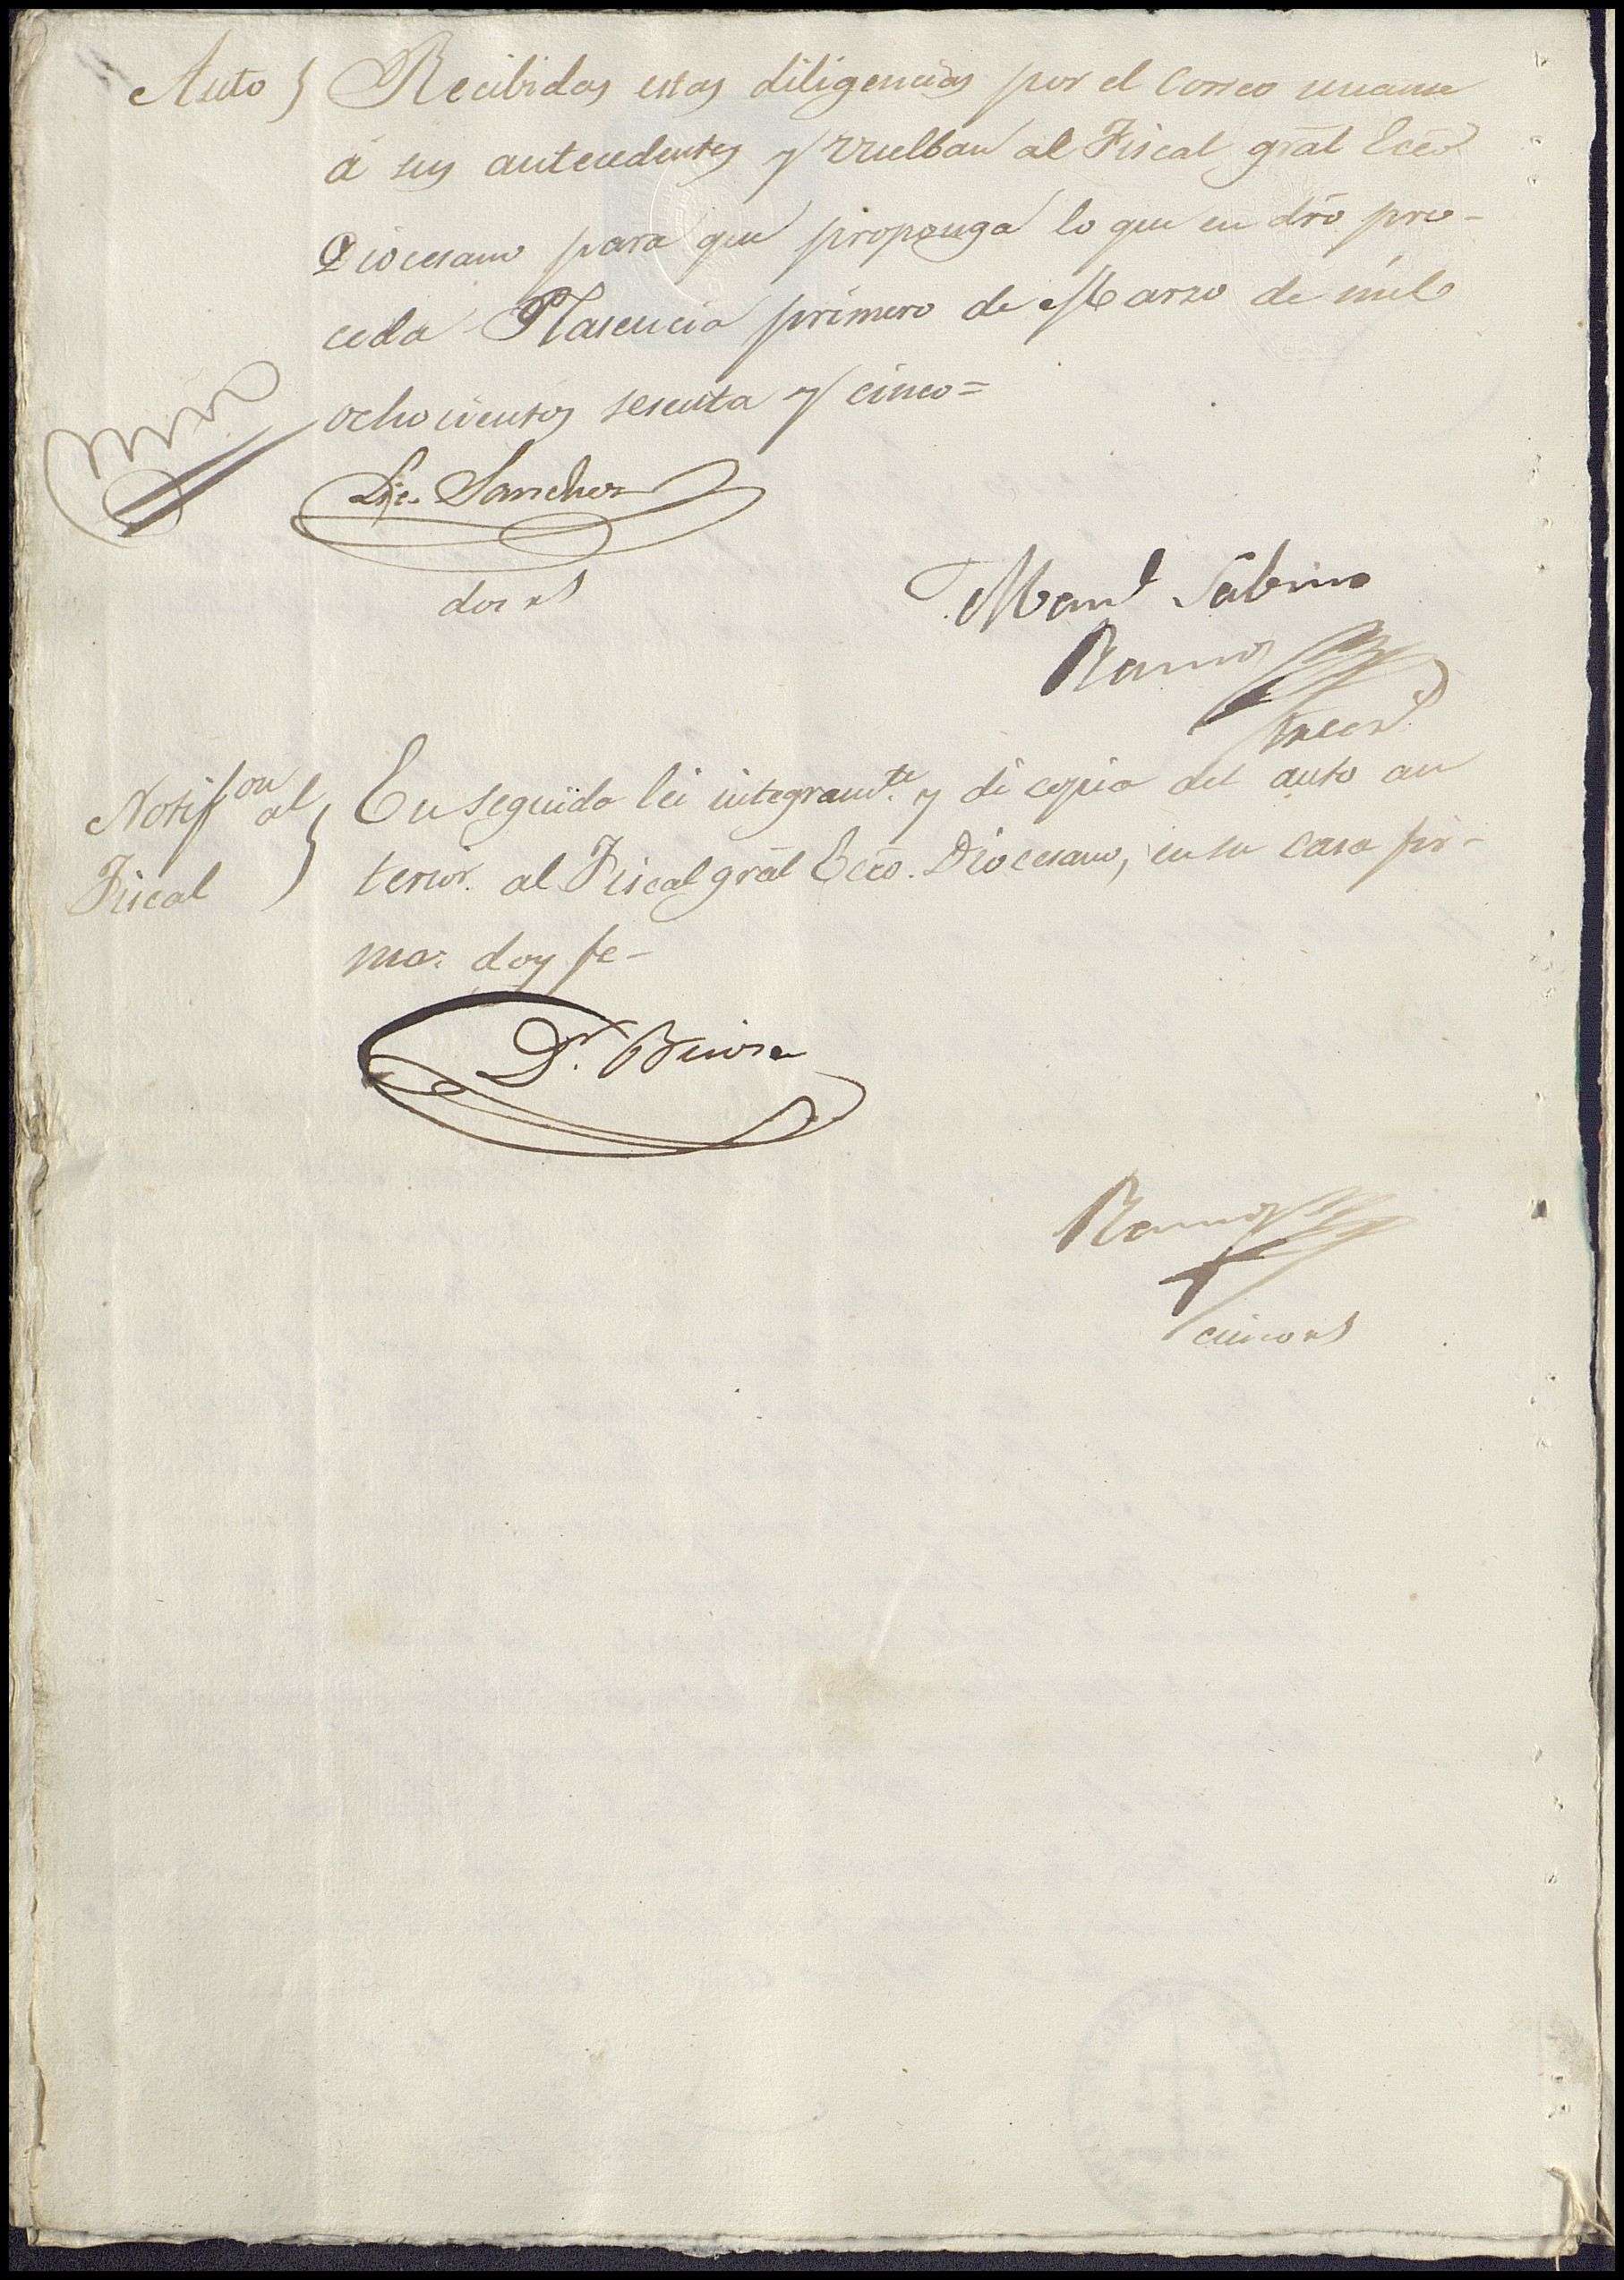 Auto } Recibidas estas diligencias por el Correo unanse
á sus antecedentes y vuelban al Fiscal gral Ecco
Diocesano para que proponga lo que en dro pro-
ceda Plasencia primero de Marzo de mil
ochocientos sesenta y cinco=
Lic. Sanchez
dos rs
Manl Sabino
Ramos
tres rs
Notifon al Fiscal } En seguida lei integramte. y di copia del auto an
terior. al Fiscal gral Ecco. Diocesano, en su casa fir-
ma: doy fe-
Dr.
Ramos
cinco rs